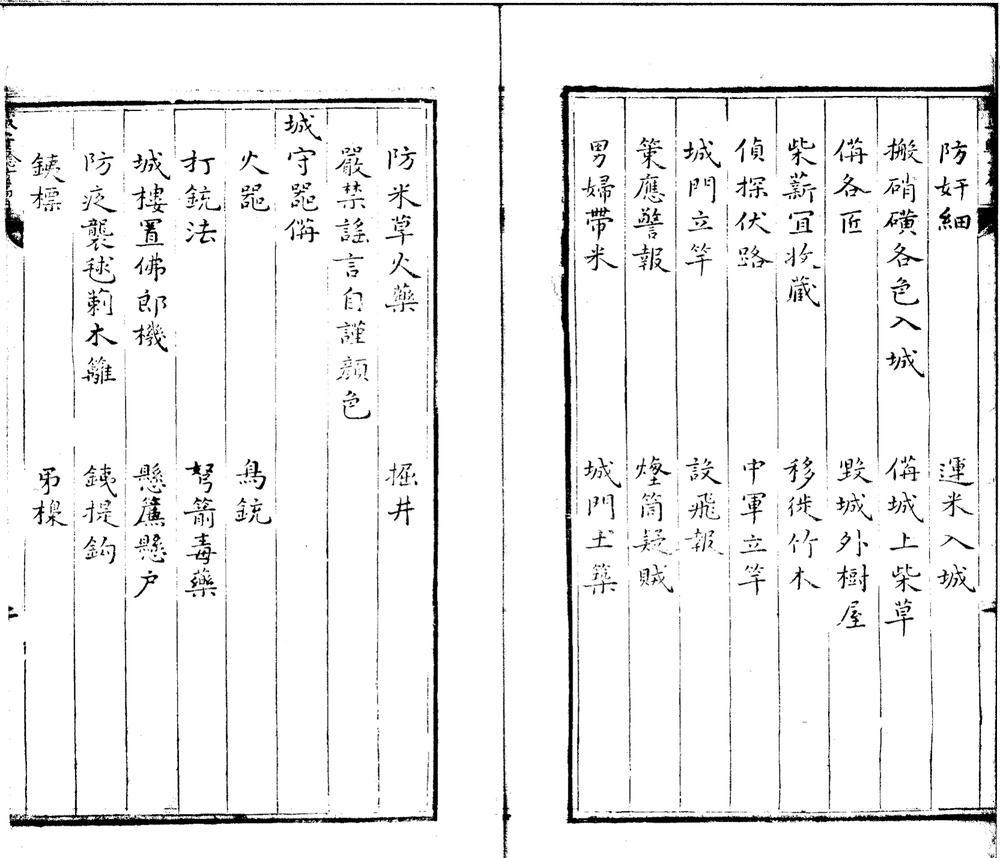 防奸細　運米入城
搬硝磺各色入城　偹城上柴草
偹各匠　毀城外樹屋
柴薪冝收藏　移徙竹木
偵探伏路　中軍立竿
城門立竿　設飛報
策應警報　煙筒疑賊
男婦帶米　城門土築
防米草火藥　掘井
嚴禁謠言自謹顔色
城守噐偹
火噐　鳥銃
打銃法　弩箭毒藥
城樓置佛郎機　懸簾懸户
防夜襲毬蒺木籬　鐵提鈎
鐵標